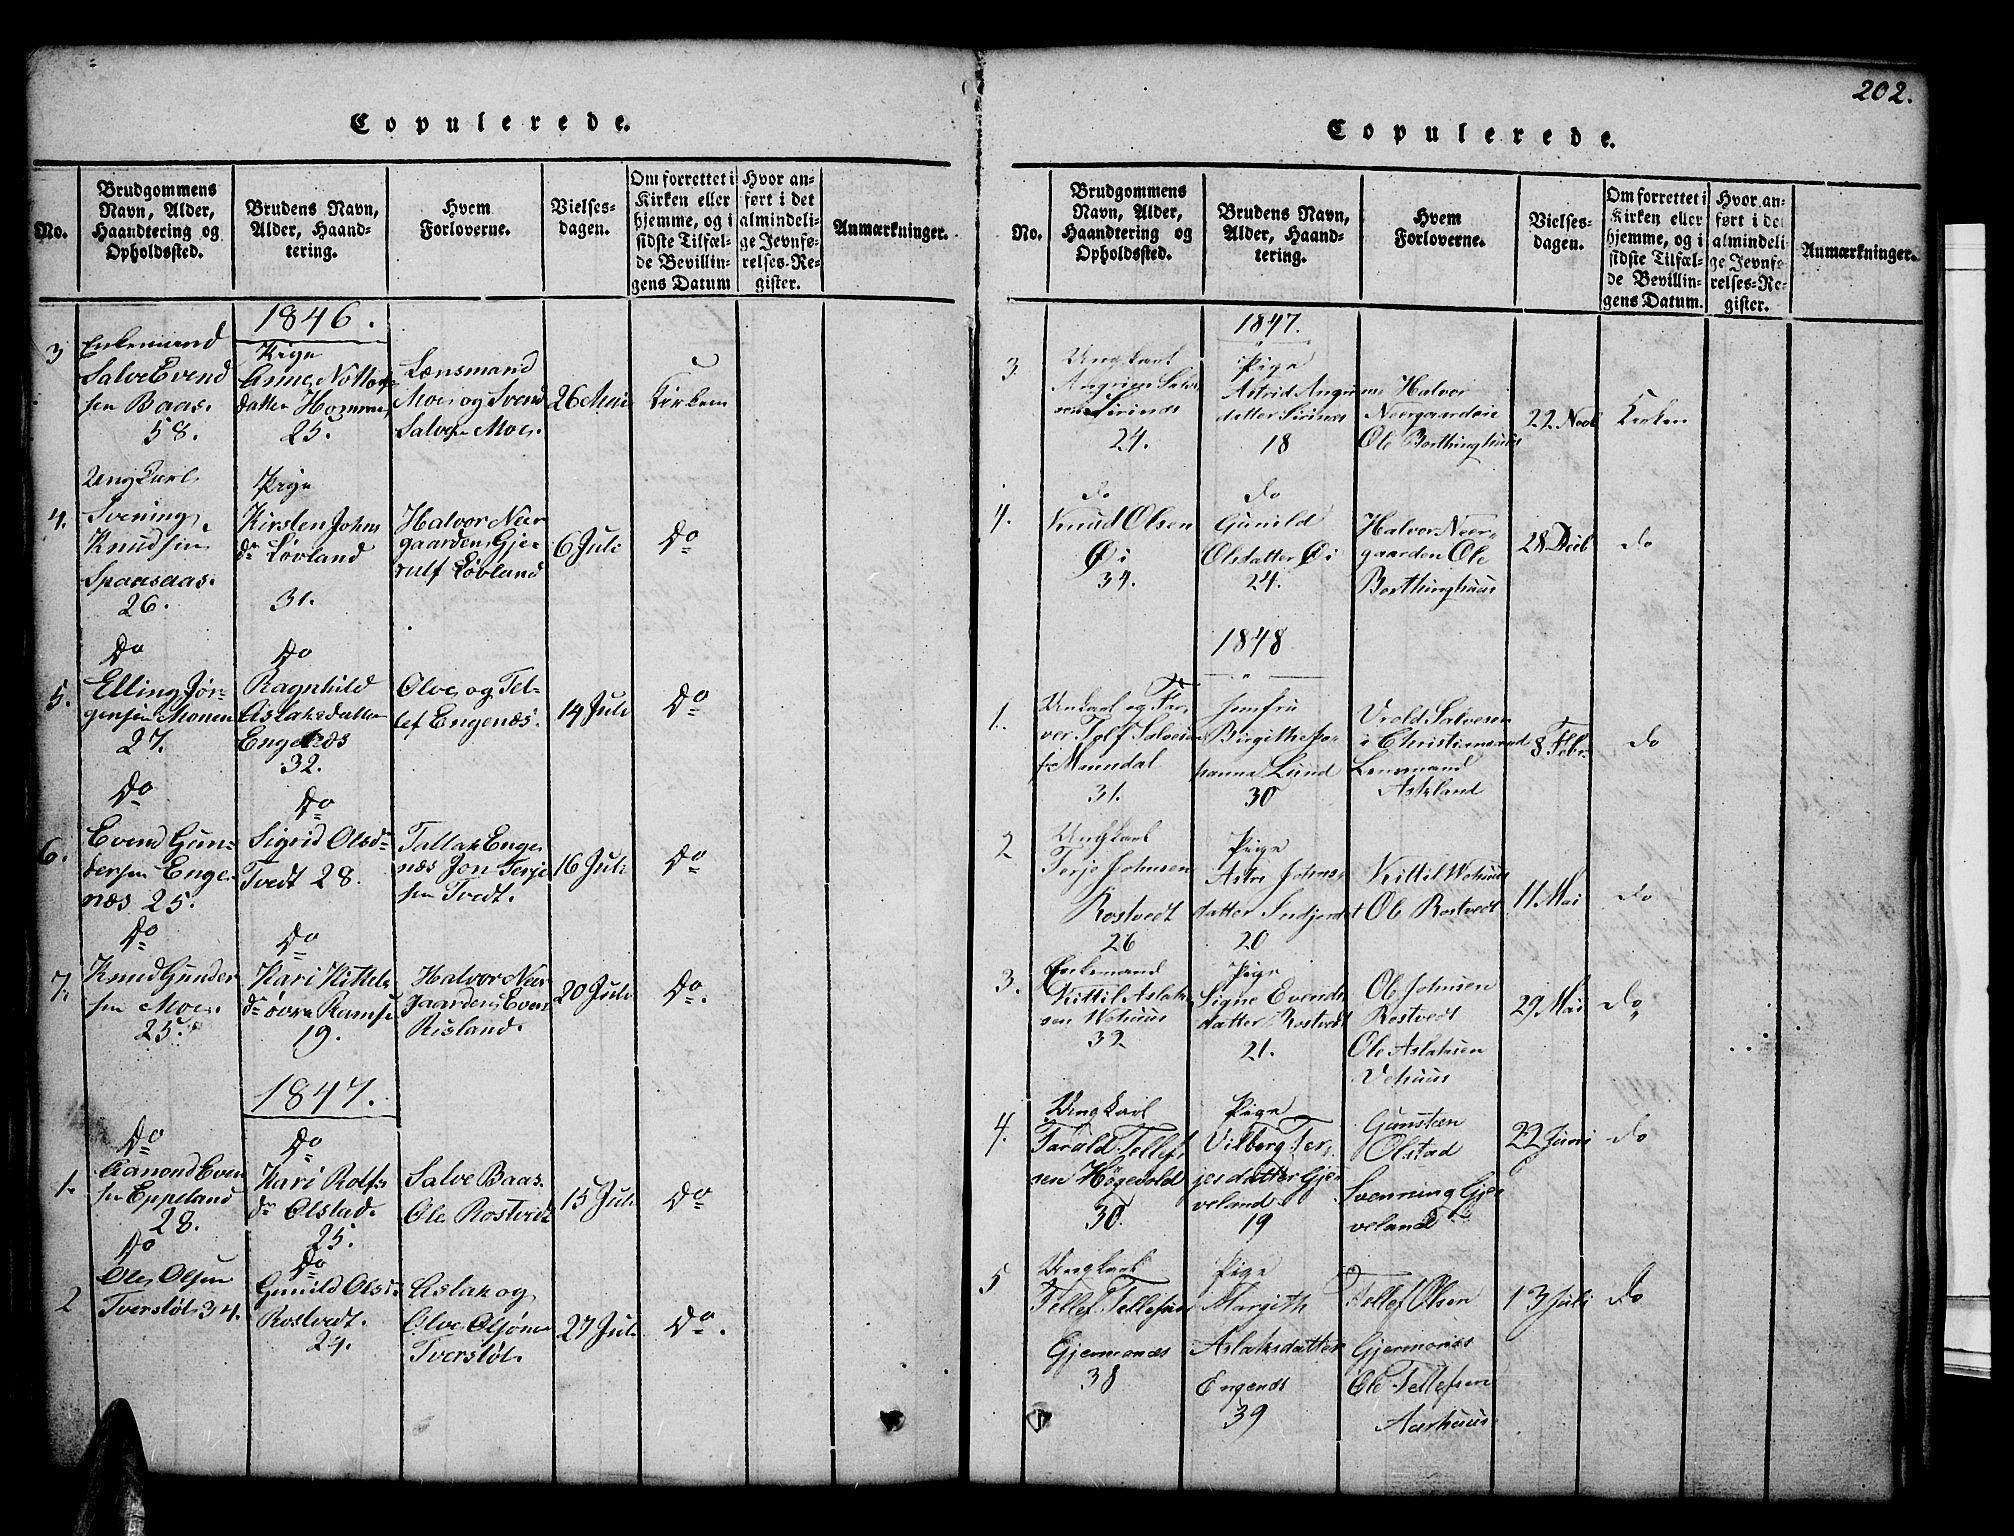 202.
Copulerede.
No.
Brudgommens
Navn, Alder,
Haandtering og
Opholdssted.
Brudens Navn,
Alder, Haand-
tering.
Hvem
Forloverne.
Vielses-
dagen.
Om forrettet i
Kirken eller
hjemme, og i
sidste Tilfæl-
de Bevillin-
gens Datum
Hvor an-
ført i det
almindeli-
ge Jevnfø-
relses-Re-
gister.
Anmærkninger.
1846.
3
Enkemand
Salve Evend
sen Baas.
58.
Pige
Anne Nottolfs
datter Homme
25.
Lensmand
Moe og Svend
Salves. Moe.
26 Mai
Kirken
4.
Ungkarl
Svening
Knudsen
Spaasaas.
26.
Pige
Kirsten Johns
dr Løvland
31.
Halvor Neer
gaarden Gje-
rulf Løvland
6 Juli
Do
5.
Do
Elling Jør-
gensen Monen
27.
Do
Ragnhild
Aslaksdatter
Engenæs
32.
Olve og Tel-
lef Engenæs.
14 Juli
Do
6.
Do
Evend Gun-
dersen Enge-
næs 25.
Do
Sigrid Olsdr
Tvedt 28.
Tallak Enge
næs Jon Terje
sen Tvedt.
16 Juli
Do
7.
Do
Knud Gunder
sen Moe.
25.
Do
Kari Kittels
dr øvre Ramse
19.
Halvor Neer
gaarden Even
Risland.
20 Juli
Do.
1847.
1.
Do
Aamond Even
sen Eppeland
28.
Do
Kari Rolfs
dr Olstad.
25.
Salve Baas.
Ole Rostvedt
15 Juli
Do
2
Do
Ole Olsen
Tversløt 34.
Do
Gunild Olsdr
Rostvedt.
24.
Aslak og
Olve Olsøn
Tversløt.
27 Jul.
Do.
Copulerede.
No.
Brudgommens
Navn, Alder,
Haandtering og
Opholdssted.
Brudens Navn,
Alder, Haand-
tering.
Hvem
Forloverne.
Vielses-
dagen.
Om forrettet i
Kirken eller
hjemme, og i
sidste Tilfæl-
de Bevillin-
gens Datum.
Hvor an-
ført i det
almindeli-
ge Jevnfø-
relses-Re-
gister.
Anmærkninger.
1847.
3
Ungkarl
24.
Pige
Astrid
datter
18
Halvor
Neergaarden
Ole Borthinghuus
22 Novb
Kirken
4.
do
Knud Olsen
Øi
34.
do
Gunild
Olsdatter Øi
24.
Halvor Neer-
gaarden Ole
Borthinghuus
28 Decb
do
1848
1.
Unkarl og Far
ver Tolf Salvesen
Mandal
31.
Jomfru
Birgithe Jo-
hanna Lund
30
Vrold Salvesen
i Christiansand
Lensmand
Askland
8 Febr.
do
2
Ungkarl
Terje Johnsen
Rostvedt
26
Pige
Astri Johns
datter
20
Kittil Wehuus
Ole Rostvedt
11 Mai
do
3.
Enkemand
Kittil Aslak
sen Wehuus
32
Pige
Signe Evends
datter Rostvedt
21.
Ole Johnsen
Rostvedt
Ole Aslaksen
Vehuus
29 Mai
do
4.
Ungkarl
Tarald Tellef
sen Høgevold
30.
Pige
Vilberg Ter
jesdatter Gje
veland
19
Gunsten
Olstad
Svenning Gje
veland
22 Juni
do
5
Ungkarl
Tellef Tellefsen
Gjermonæs
38
Pige
Margith
Aslaksdatter
Engenæs
39
Tellef Olsen
Gjermonæs
Ole Tellefsen
Aarhuus
13 Juli
Do